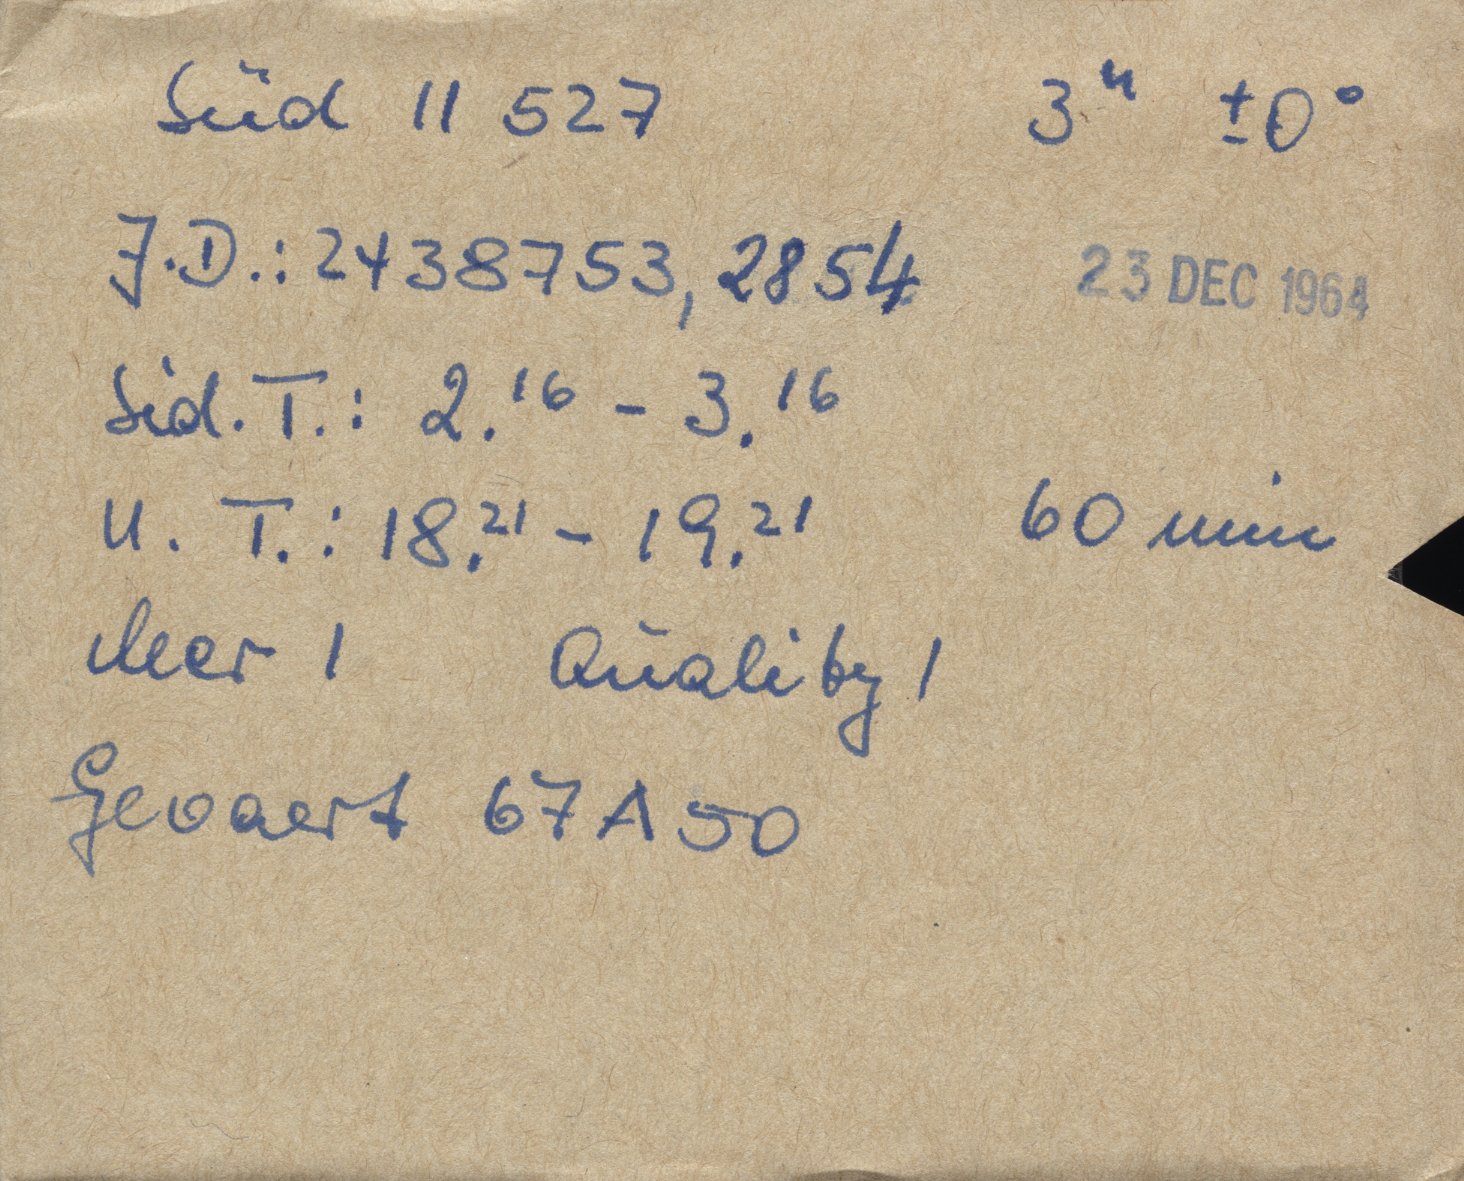 Süd 11 527 3ʰ ±0°
J.D.: 2438753,2854 23 DEC 1964
Sid. T.: 2.¹⁶ - 3.¹⁶
U. T.: 18.²¹ - 19.²¹ 60 min
Meer 1 Quality 1
Gevaert 67 A 50